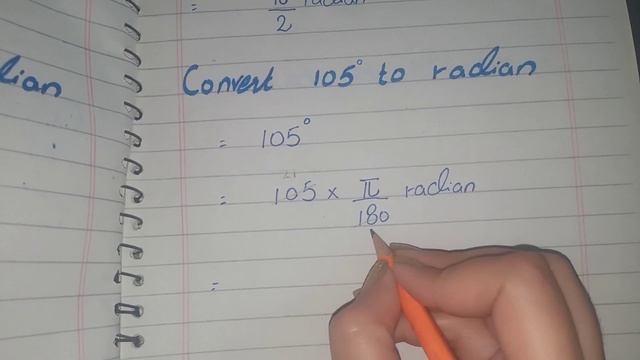 = π/2 radian
dian
Convert 105° to radian
= 105°
21
= 105 × π/180 radian
=